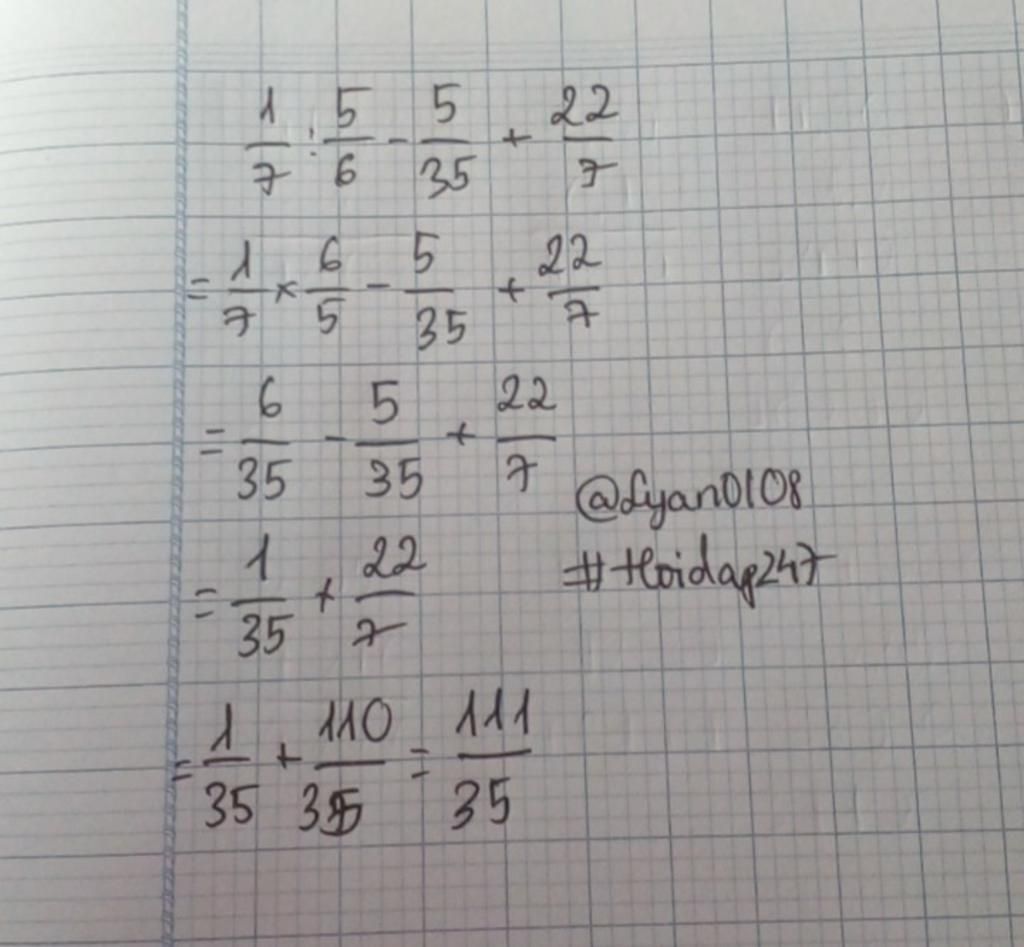 1/7 : 5/6 - 5/35 + 22/7
= 1/7 × 6/5 - 5/35 + 22/7
= 6/35 - 5/35 + 22/7
@Lyan0108
= 1/35 + 22/7
#Hoidap247
= 1/35 + 110/35 = 111/35